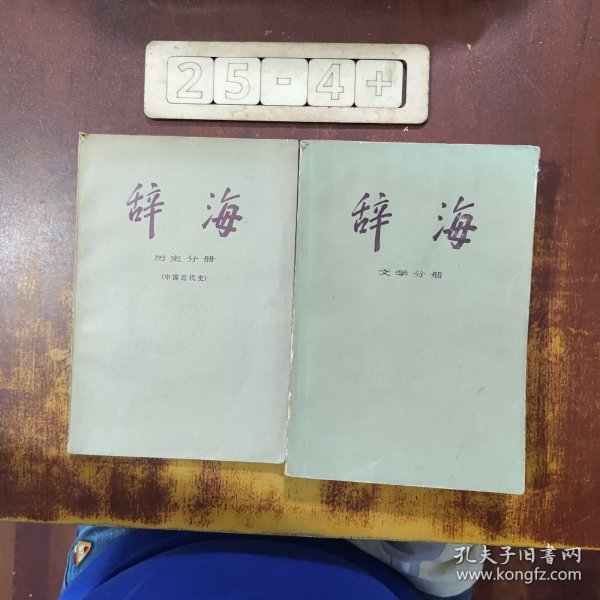 25-4+
辞海
历史分册
(中国近代史)
辞海
文学分册
孔夫子旧书网
www.kongfz.com